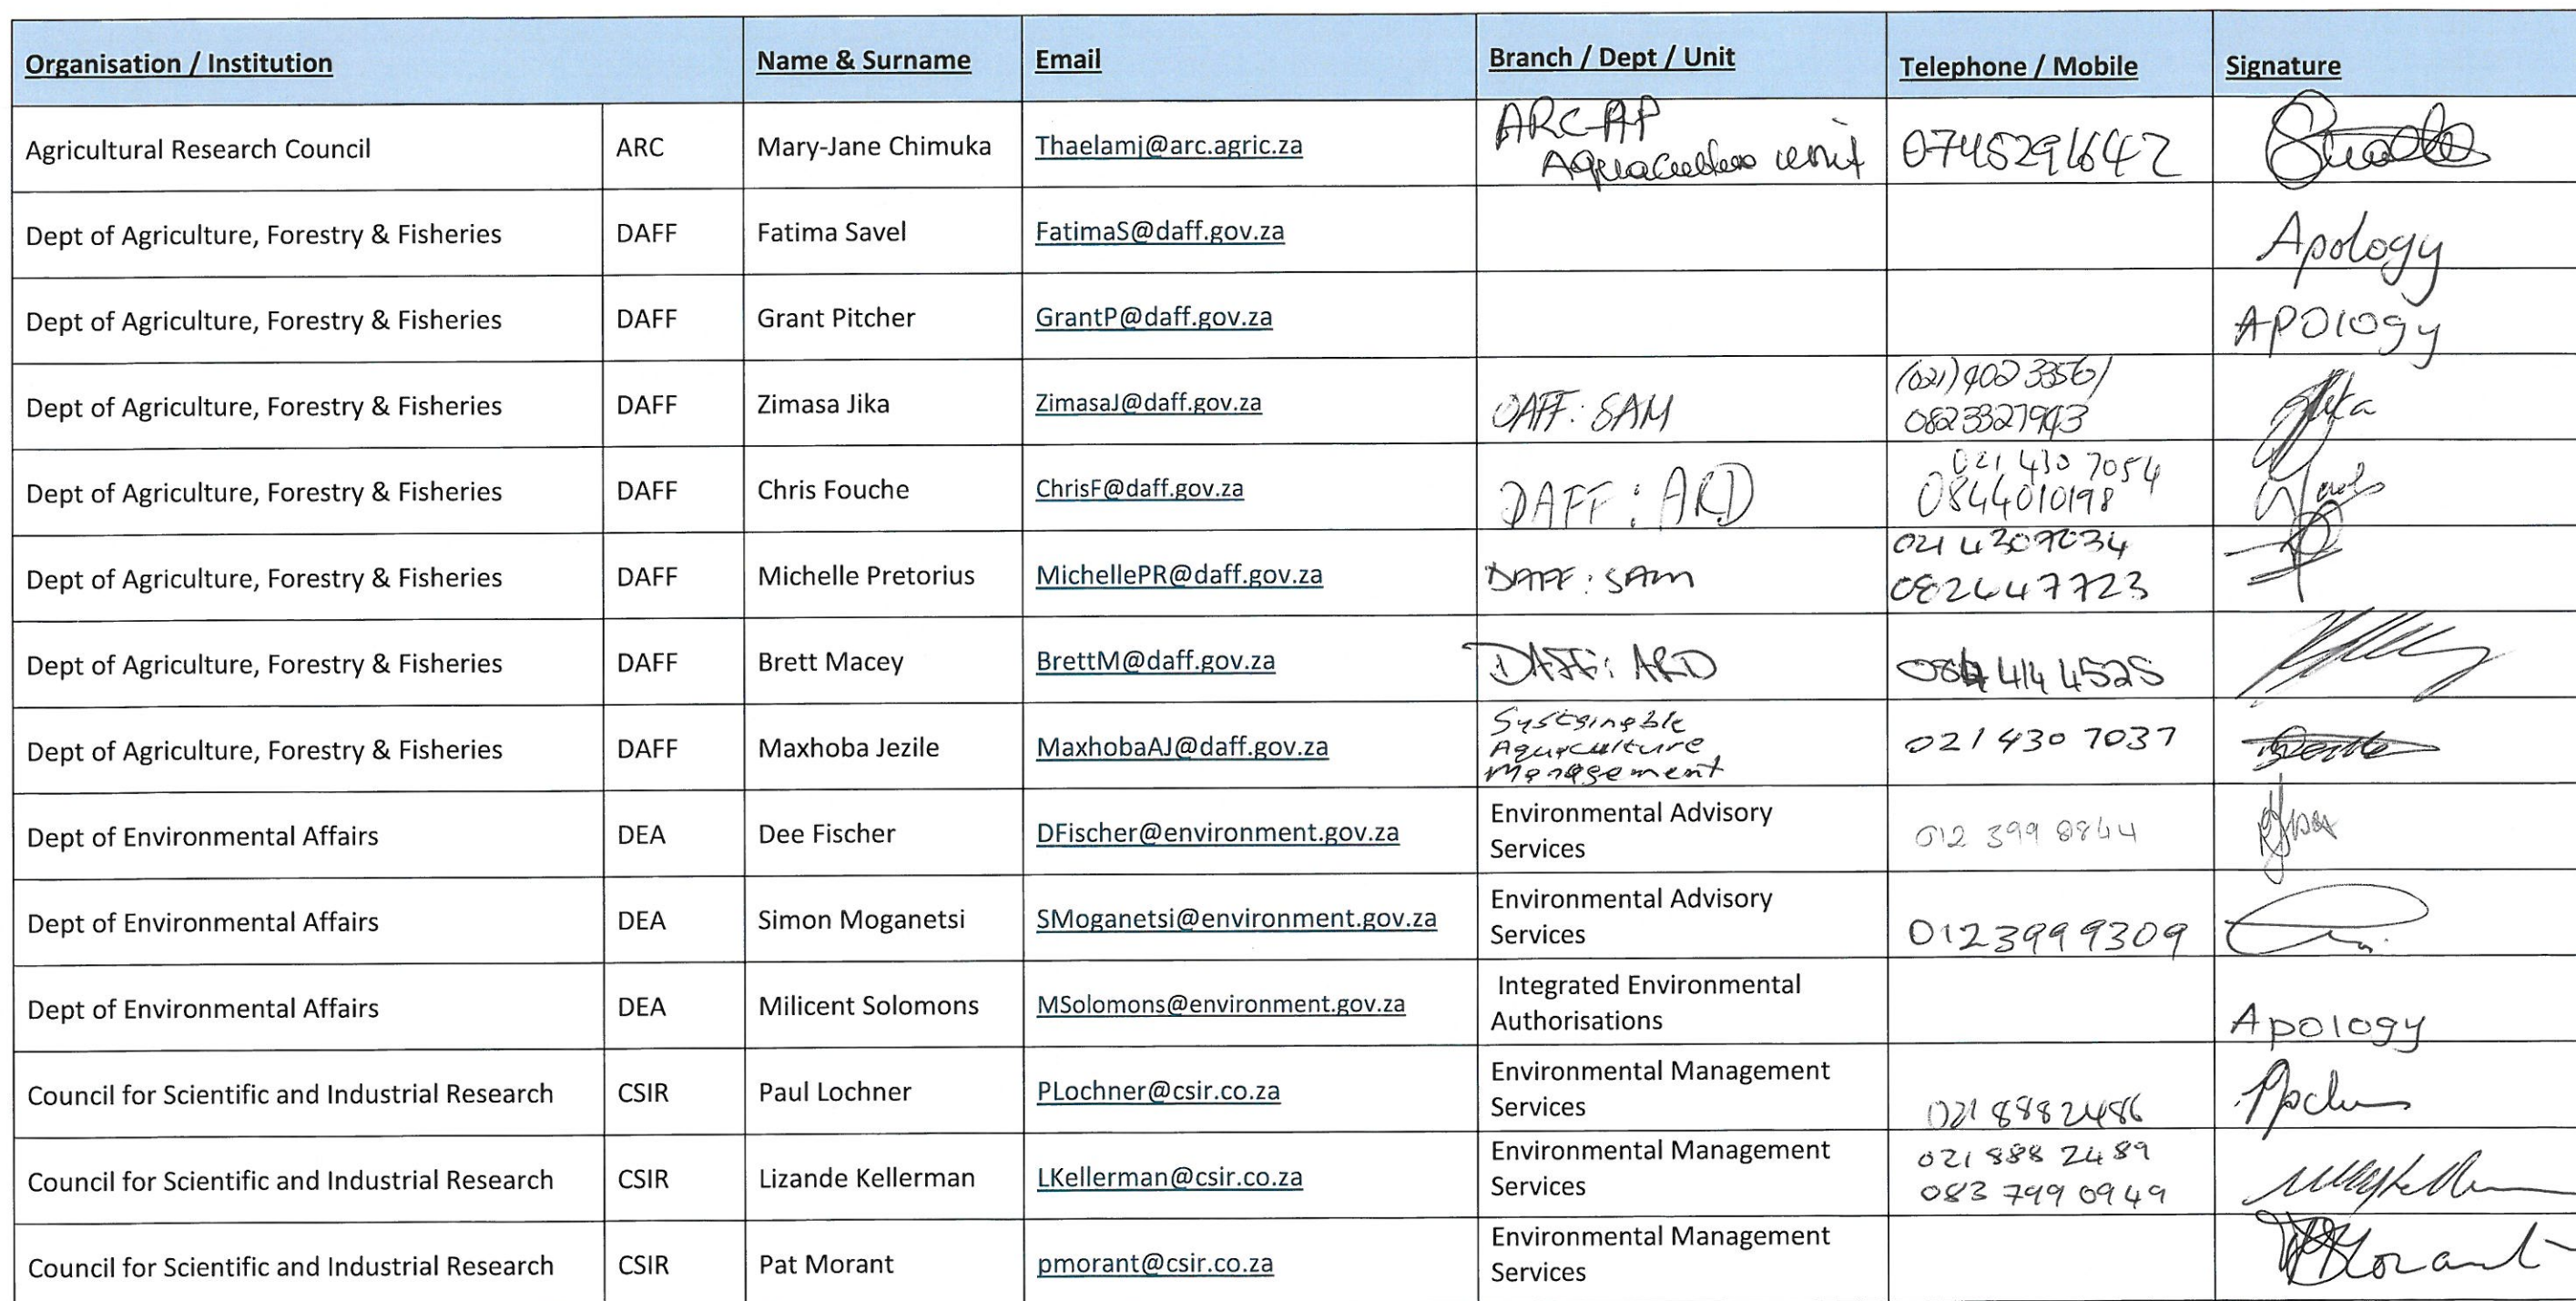 Organisation / Institution Name & Surname Email Branch / Dept / Unit Telephone / Mobile Signature
Agricultural Research Council ARC Mary-Jane Chimuka Thaelamj@arc.agric.za ARC-AP
Aquaculture unit 0745291642
Dept of Agriculture, Forestry & Fisheries DAFF Fatima Savel FatimaS@daff.gov.za Apology
Dept of Agriculture, Forestry & Fisheries DAFF Grant Pitcher GrantP@daff.gov.za Apology
Dept of Agriculture, Forestry & Fisheries DAFF Zimasa Jika ZimasaJ@daff.gov.za DAFF: SAM (021) 402 3356/
0823327943
Dept of Agriculture, Forestry & Fisheries DAFF Chris Fouche ChrisF@daff.gov.za DAFF: ARD 021 430 7054
0844010198
Dept of Agriculture, Forestry & Fisheries DAFF Michelle Pretorius MichellePR@daff.gov.za DAFF: SAM 021 4307034
082647723
Dept of Agriculture, Forestry & Fisheries DAFF Brett Macey BrettM@daff.gov.za DAFF: ARD 084 414 4525
Dept of Agriculture, Forestry & Fisheries DAFF Maxhoba Jezile MaxhobaAJ@daff.gov.za Sustainable
Aquaculture
Management 021 430 7037
Dept of Environmental Affairs DEA Dee Fischer DFischer@environment.gov.za Environmental Advisory
Services 012 399 8844
Dept of Environmental Affairs DEA Simon Moganetsi SMoganetsi@environment.gov.za Environmental Advisory
Services 0123999309
Dept of Environmental Affairs DEA Milicent Solomons MSolomons@environment.gov.za Integrated Environmental
Authorisations Apology
Council for Scientific and Industrial Research CSIR Paul Lochner PLochner@csir.co.za Environmental Management
Services 021 8882486
Council for Scientific and Industrial Research CSIR Lizande Kellerman LKellerman@csir.co.za Environmental Management
Services 021 888 2489
083 799 0949
Council for Scientific and Industrial Research CSIR Pat Morant pmorant@csir.co.za Environmental Management
Services PMorant